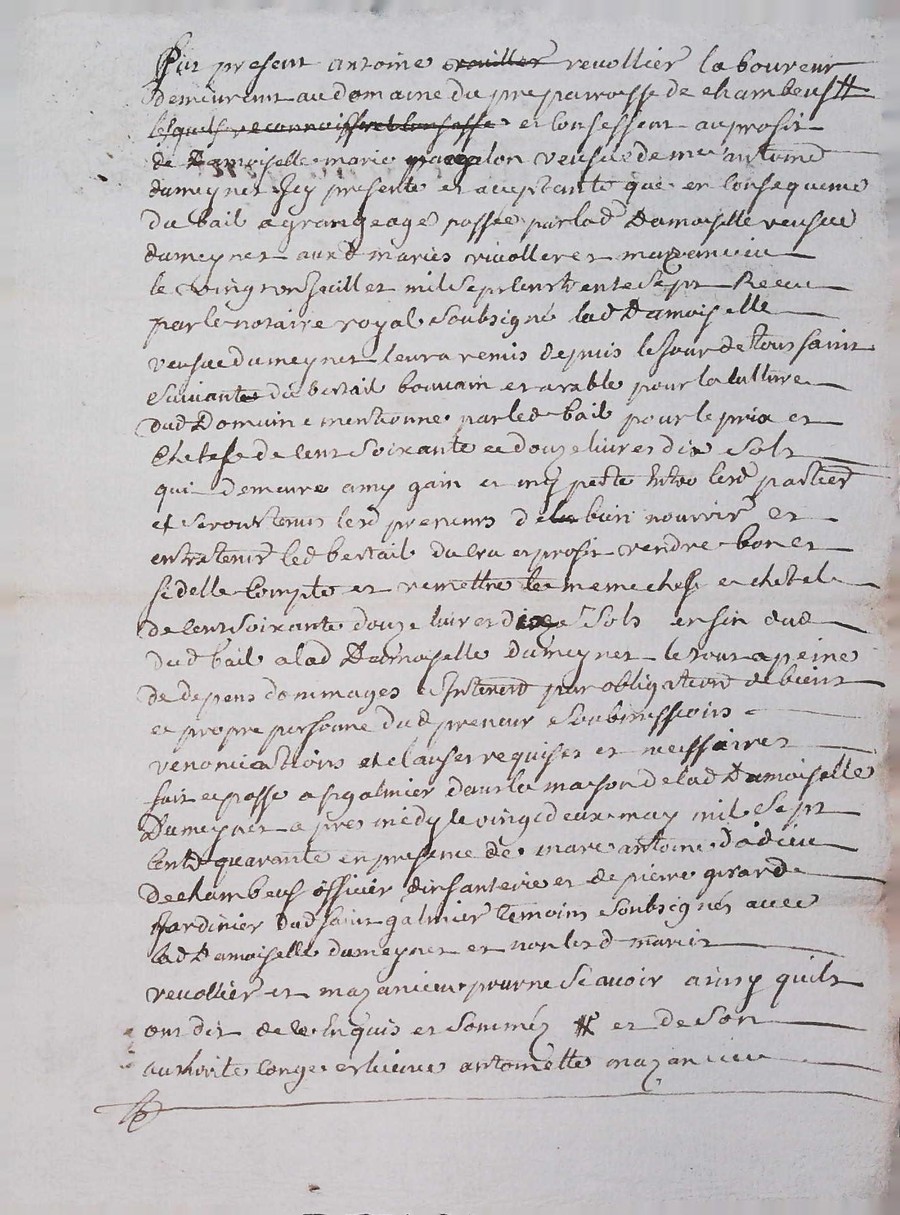 Fut present antoine rouiller revollier laboureur
demeurant au domaine du pre parroisse de chambeuf #
lesquels reconnoissent et confesse et confessent au profit
de Damoiselle marie magalon veufue de mre antoine
dumeynet Icy presente et aceptante que en consequence
du bail a grangeage passée par lad Damoiselle veufue
dumeynet aux d mariés revollier et mazancieu
le vingt un Juillet mil sept cent trente sept Receu
par le notaire royal soubsigné lad Damoiselle
veufue dumeynet leur a remis depuis le Jour de tous saint
suivante du bertail bouvain et arable pour la culture
dud Domaine mentionné par led bail pour le prix et
chetel de cent soixante et douze livres dix sols
qui demeure a my gain et my perte Entre lesd parties
et seront tenus lesd preneurs de bien nourrir et
entretenir led bertail du cru et profit rendre bon et
fidelle compte et remettre le meme chef et chetel
de cent soixante douze livres dix sols en fin dud
dud bail a lad Damoiselle dumeynet le tout a peine
de depens dommages Interets par obligation de biens
et propre personne dud preneur soubmissions
renonciations et clauses requises et necessaires
fait et passé a st galmier dans la mayson de lad Damoiselle
Dumeynet apres midy le vingt deux may mil sept
cent quarante en presence de marc antoine
de chambeuf officier dinfanterie et de pierre girard
Jardinier dud saint galmier temoins soubsignés avec
lad Damoiselle dumeynet et non lesd mariés
revollier et mazancieu pour ne scavoir ainsy quils
ont dit de ce Enquis et sommés # et de son
authorité congé et licence antoinette mazancieu